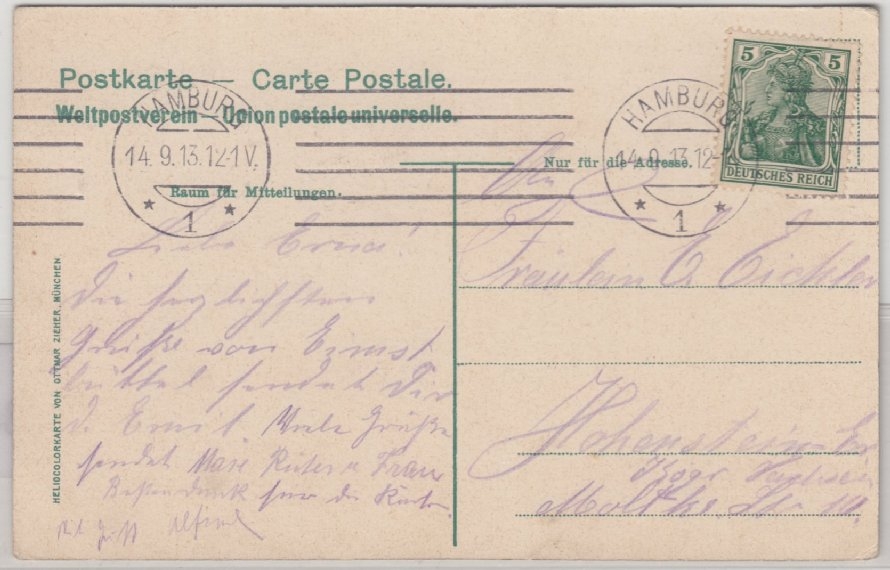 Postkarte — Carte Postale.
Weltpostverein – Union postale universelle.
HAMBURG
14.9.13.12-1 V.
* 1 *
HAMBURG
14.9.13.12-1
* 1 *
5 5
DEUTSCHES REICH
Nur für die Adresse.
Raum für Mitteilungen.
HELIOCOLORKARTE VON OTTMAR ZIEHER, MÜNCHEN
Liebe Erna!
Die herzlichsten
Grüße von Eims
büttel sendet Dir
d. Emil. Viele Grüße
sendet Max u. Frau
Besten dank für die Karte.
Alfred
An
Fräulein E. Eichler
Hohenstein-Er
Moltke Str